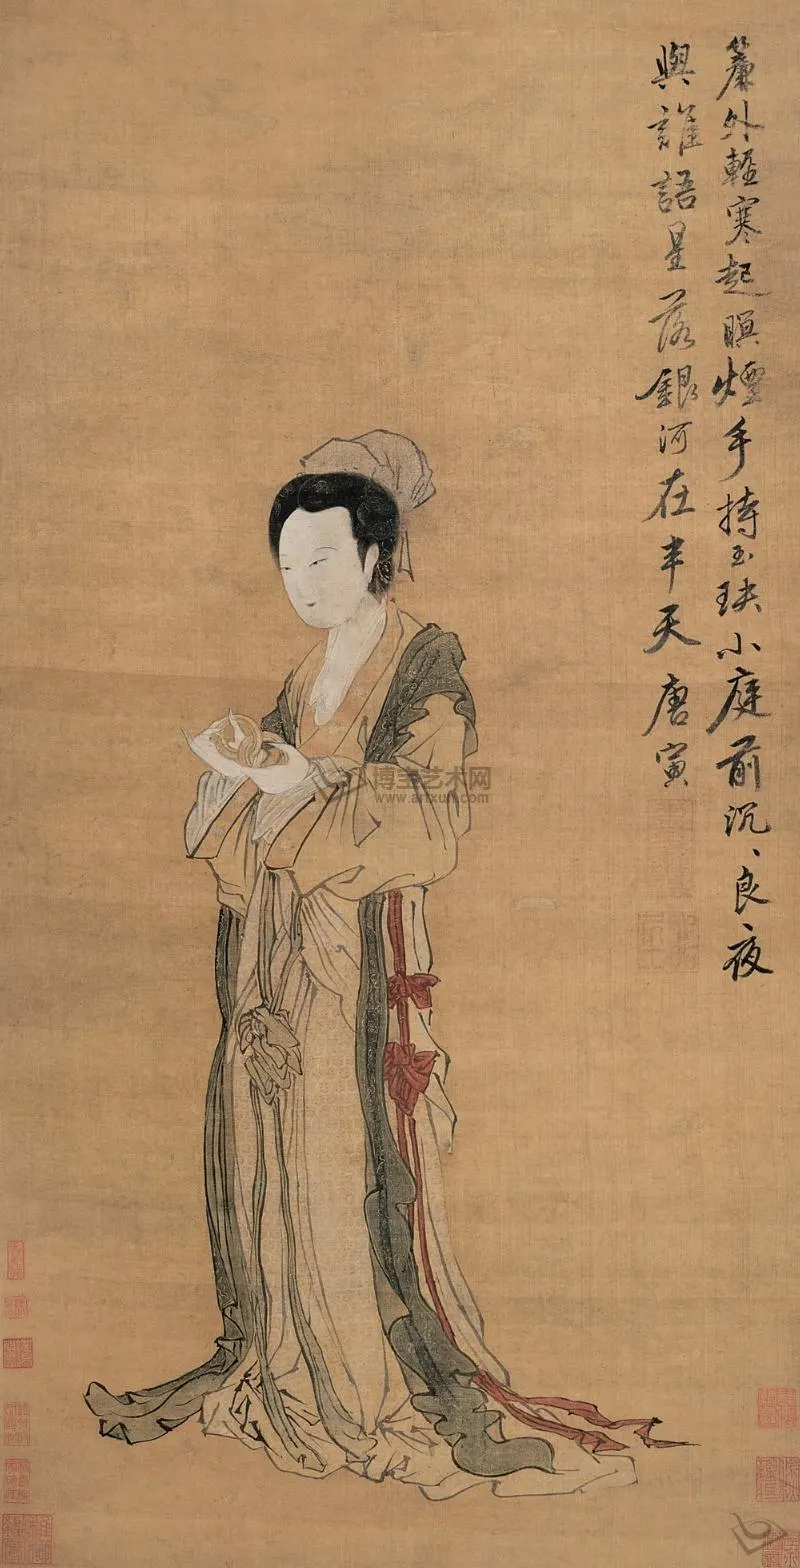 簾外輕寒起暝煙手持玉玦小庭前沉、良夜
與誰語星落銀河在半天唐寅
博宝艺术网
www.artxun.com